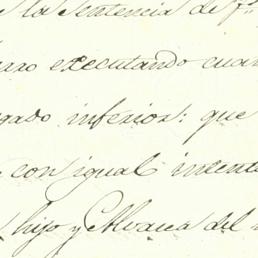 la Sentencia de
executando
gado inferior: que
con igual intent
hijo y Alvacea del